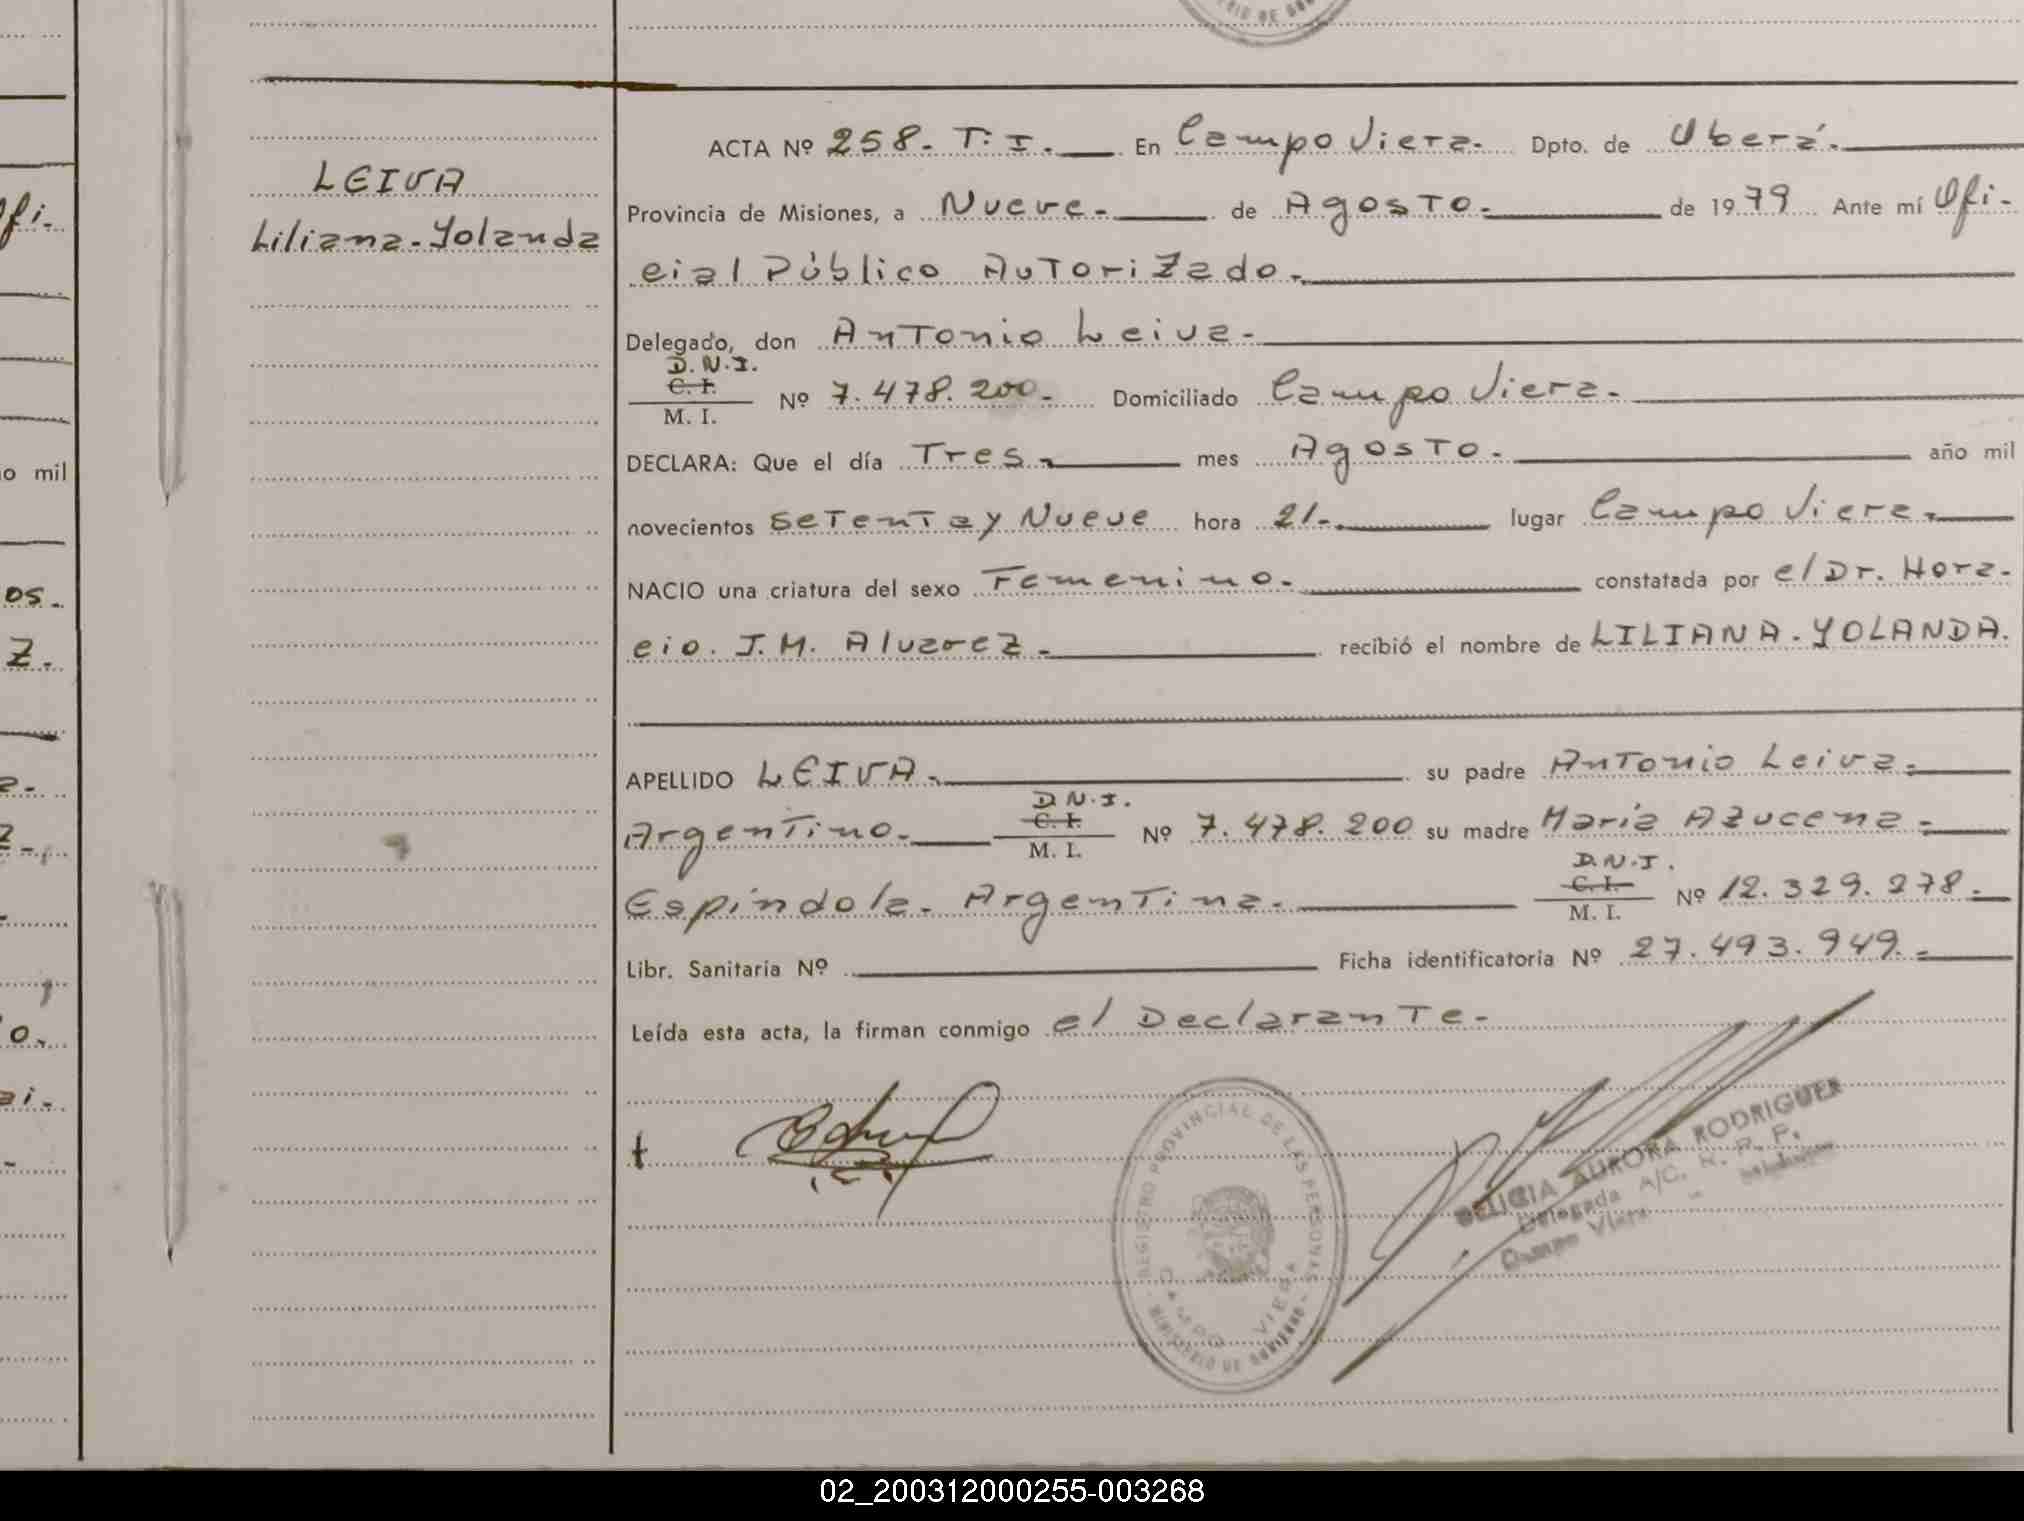 RIO DE GOB
ACTA Nº 258. T: I. En Campo Viera. Dpto. de Oberá.
LEIVA
Liliana. Yolanda
Provincia de Misiones, a Nueve. de Agosto. de 1979 Ante mí Ofi-
cial Público Autorizado.
Delegado, don Antonio Leiva.
D.N.I.
C. I.
M. I. Nº 7.478.200. Domiciliado Campo Viera.
DECLARA: Que el día Tres. mes Agosto. año mil
novecientos Setenta y Nueve hora 21. lugar Campo Viera.
NACIO una criatura del sexo Femenino. constatada por el Dr. Hora-
cio. J. M. Alvarez. recibió el nombre de LILIANA. YOLANDA.
APELLIDO LEIVA. su padre Antonio Leiva.
D.N.I.
Argentino. C. I.
M. I. Nº 7.478.200 su madre María Azucena
D.N.I.
Espíndola. Argentina. C. I.
M. I. Nº 12.329.278.
Libr. Sanitaria Nº Ficha identificatoria Nº 27.493.949.
Leída esta acta, la firman conmigo el Declarante.
REGISTRO PROVINCIAL DE LAS PERSONAS
CAMPO VIERA
MINISTERIO DE GOBIERNO
DELICIA AURORA RODRIGUEZ
Delegada A/C. R. P. P.
Campo Viera - Misiones
fi.
o mil
os.
Z.
o.
ai.
02_200312000255-003268